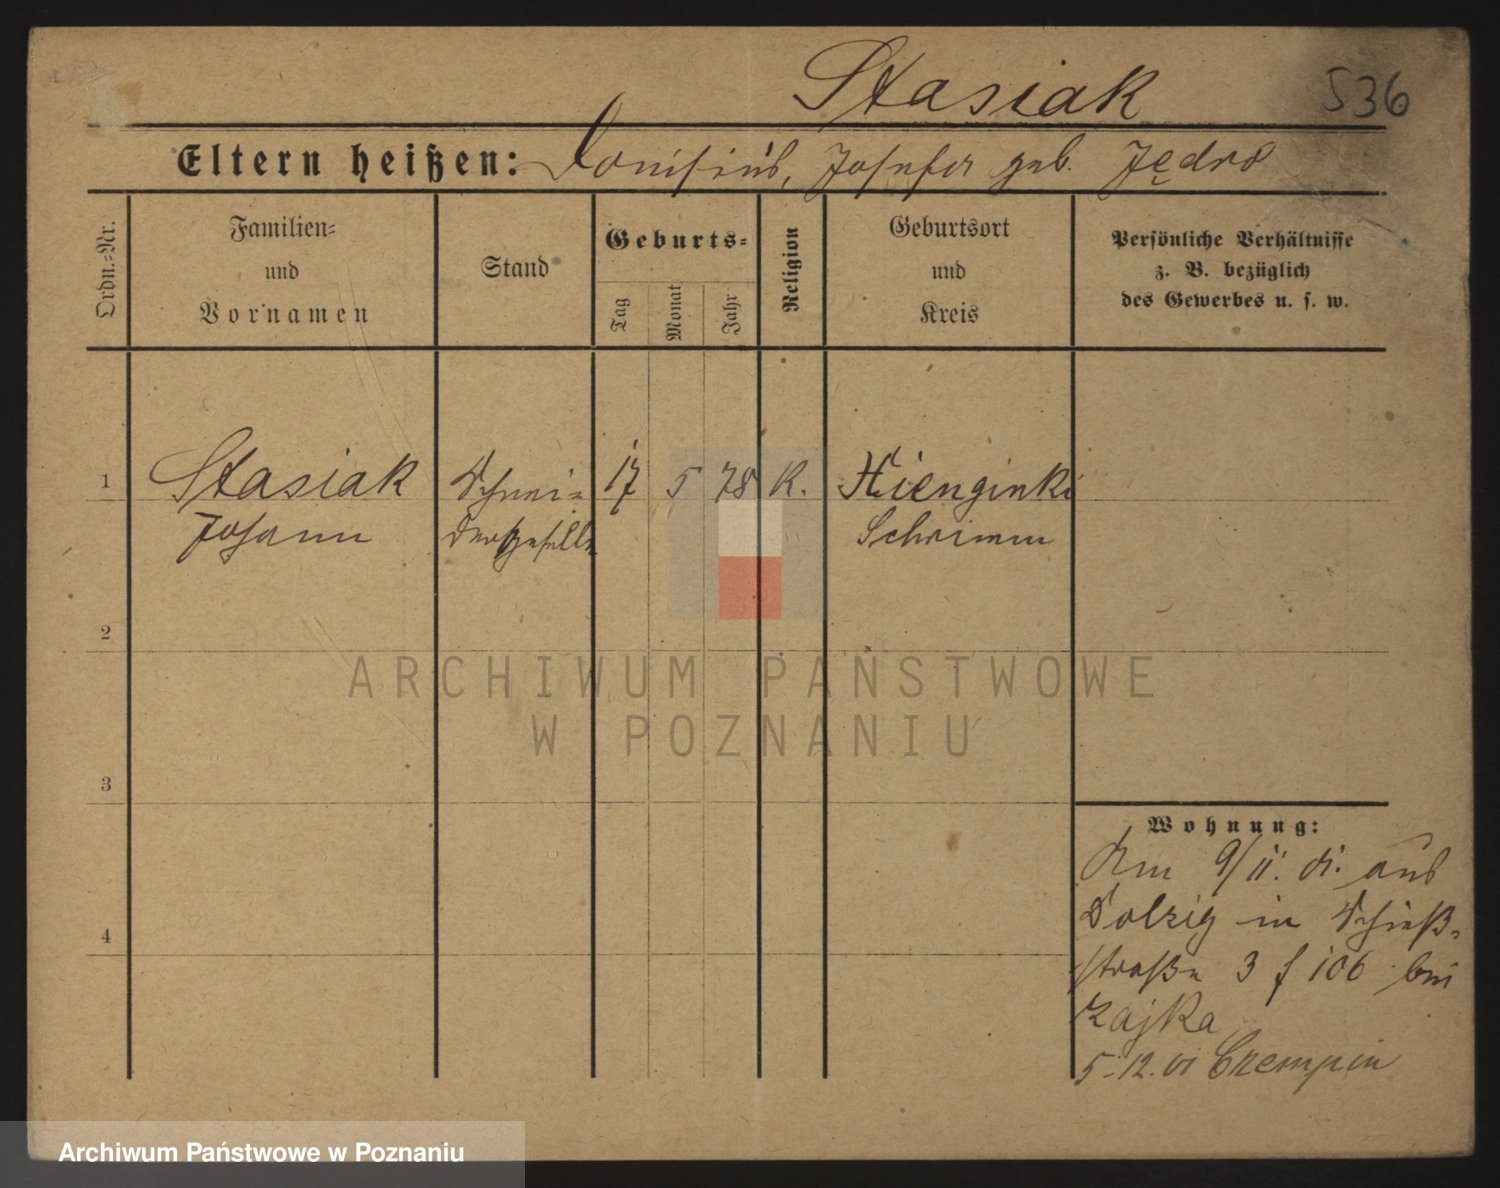 Stasiak 536
Eltern heißen: Donisius, Josefa geb. Jędro
Ordn.-Nr.
Familien-
und
Vornamen
Stand
Geburts-
Tag
Monat
Jahr
Religion
Geburtsort
und
Kreis
Persönliche Verhältnisse
z. B. bezüglich
des Gewerbes u. s. w.
1 Stasiak Schnei- 17 5 78 K. Hienginki
Johann dergeselle Schrimm
2
3
4
Wohnung:
Am 9/11. 01. aus
Dolzig in Schieß-
straße 3 f 106 bei
Zajka
5.12.01 Czempin
ARCHIWUM PAŃSTWOWE
W POZNANIU
Archiwum Państwowe w Poznaniu